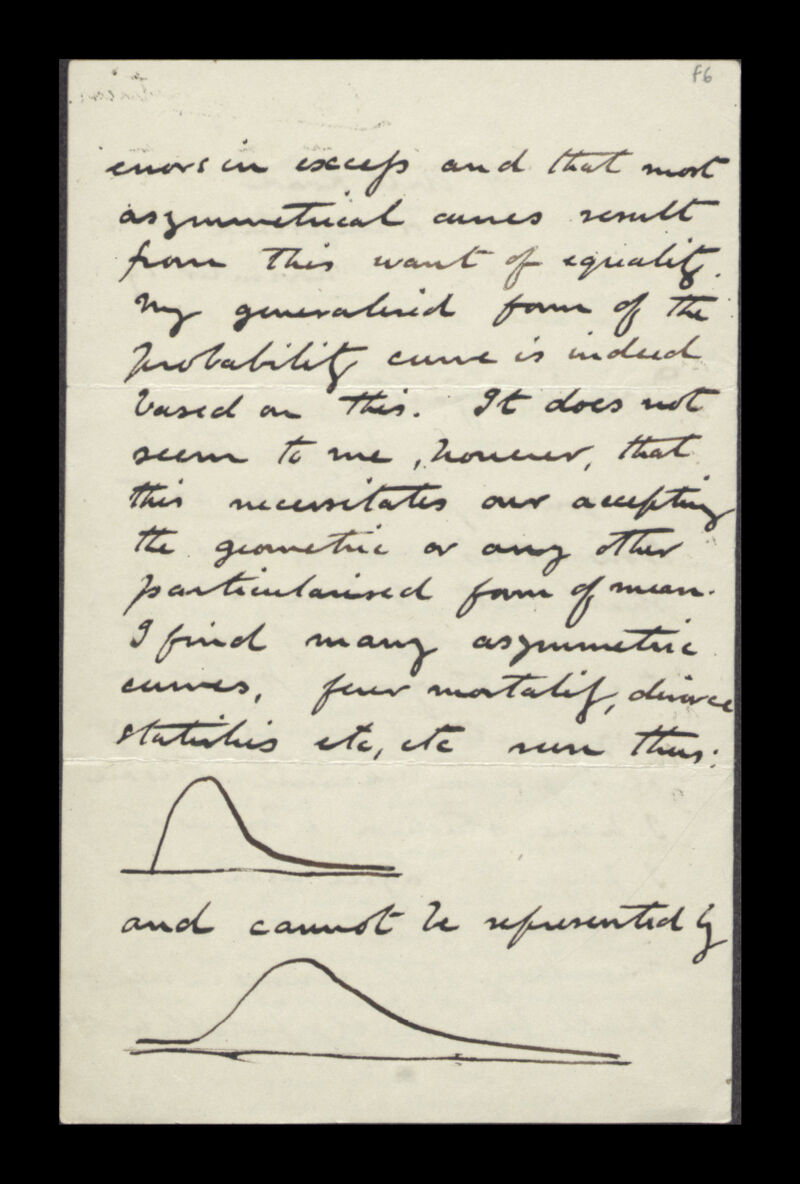 f6
errors in excess and that most
asymmetrical curves result
from this want of equality.
My generalised form of the
probability curve is indeed
based on this. It does not
seem to me, however, that
this necessitates our accepting
the geometric or any other
particularised form of mean.
I find many asymmetric
curves, fever mortality, divorce
statistics etc, etc run thus:
and cannot be represented by